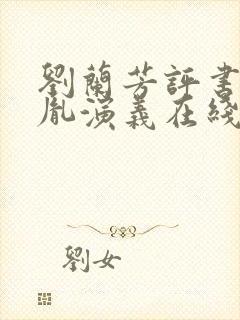 劉蘭芳評書
胤演義在綫
劉女